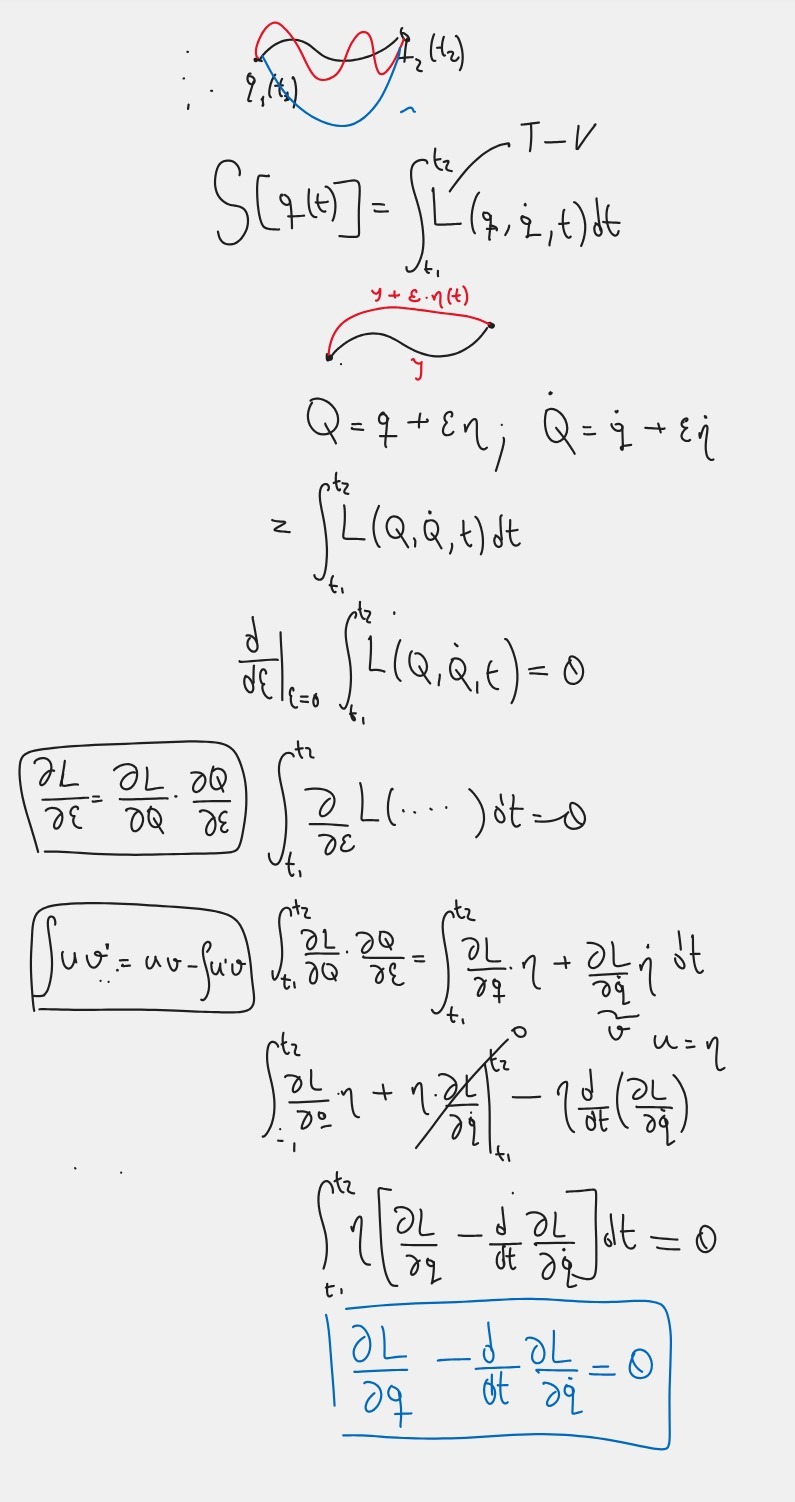 q₁(t₁) q₂(t₂)
T-V
S[q(t)] = ∫_{t₁}^{t₂} L(q, q̇, t)dt
y + ε·η(t)
y
Q = q + εη; Q̇ = q̇ + εη̇
= ∫_{t₁}^{t₂} L(Q, Q̇, t)dt
d/dε|_{ε=0} ∫_{t₁}^{t₂} L(Q, Q̇, t) = 0
∂L/∂ε = ∂L/∂Q · ∂Q/∂ε ∫_{t₁}^{t₂} ∂/∂ε L(····)dt = 0
∫uv' = uv - ∫u'v ∫_{t₁}^{t₂} ∂L/∂Q · ∂Q/∂ε = ∫_{t₁}^{t₂} ∂L/∂q · η + ∂L/∂q̇ η̇ dt
v u = η
∫^{t₂} ∂L/∂q · η + η·∂L/∂q̇|_{t₁}^{t₂} 0 - η d/dt(∂L/∂q̇)
∫_{t₁}^{t₂} η[∂L/∂q - d/dt ∂L/∂q̇]dt = 0
∂L/∂q - d/dt ∂L/∂q̇ = 0